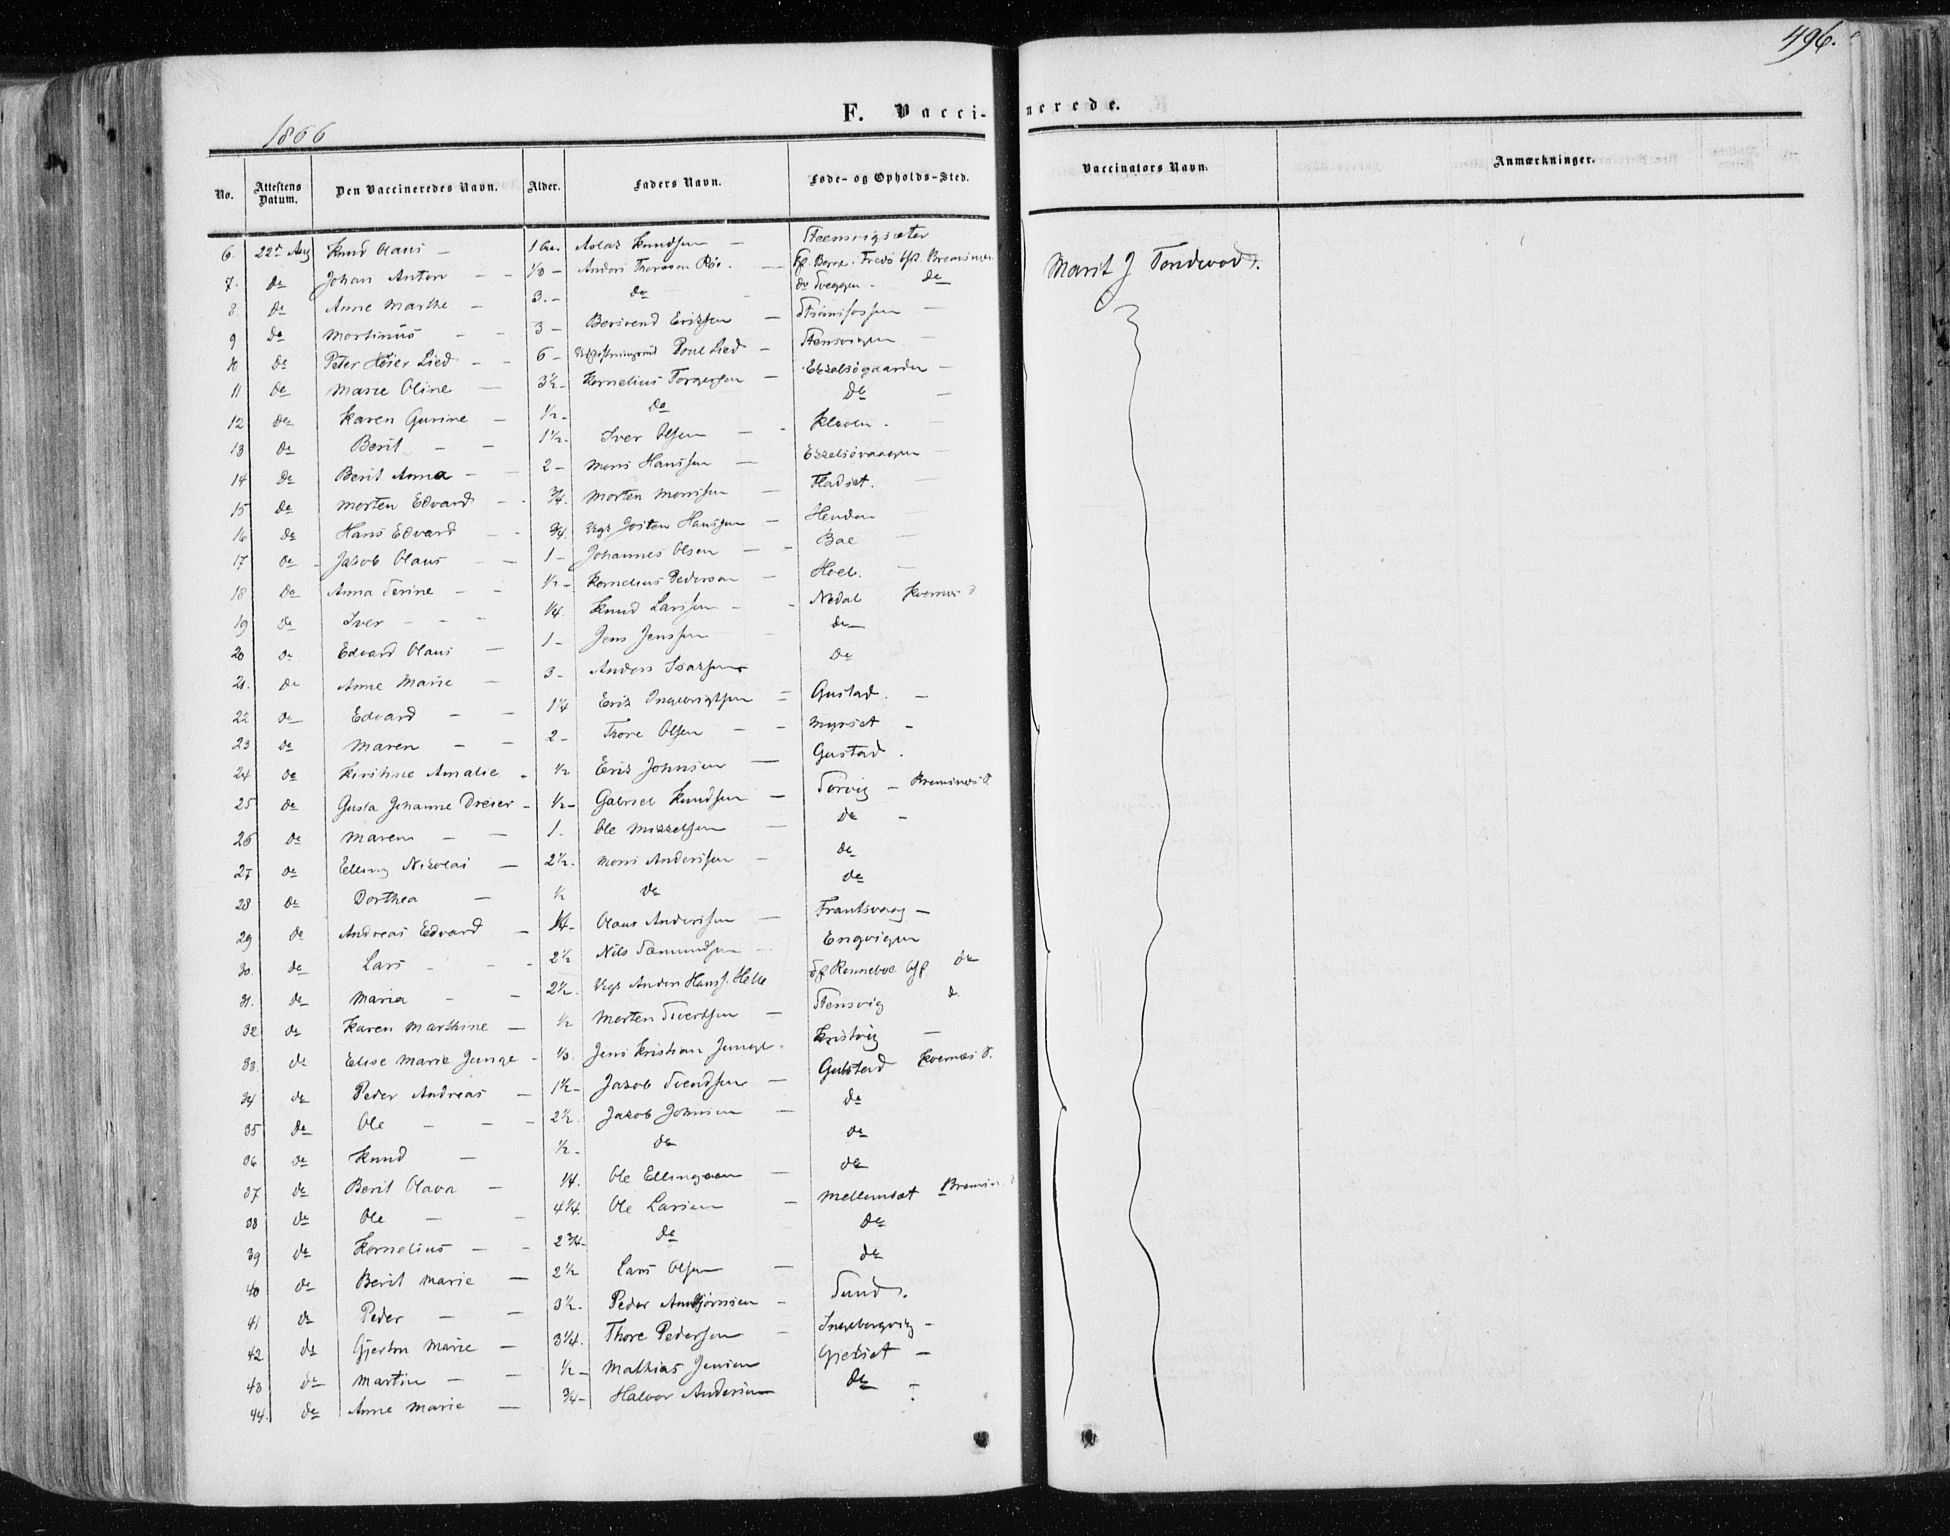 496.
F. Vaccinerede.
1866
No. Attestens Datum. Den Vaccineredes Navn. Alder. Faders Navn. Føde- og Opholds-Sted. Vaccinators Navn. Anmærkninger.
6. 22de Aug Knud Olaus - 1 Aslak Knudsen - Steensvigsæter Marit J
7. de Johan Anton - 1/3 - Anders
8. de Anne Marthe - 3. - de de de
9 de Mortinus - - 3 - Berivend Eriksen -
10 de Peter Høier Lied - - 6 - Poul Lied - Stensvigen -
11 de Marie Oline - 3 1/2 - Kornelius Torgersen - Ekkelsøgaarden -
12 de Karen Gurine - 1/2 - de de -
13 de Berit - - 1 1/2. Iver Olsen - Kleven. -
14 de Berit Anna - - 2 - Mons Hanssen - Ekkelsøvaagen -
15 de Morten Edvard - 3/4. Morten Monssen - Fladset. -
16 de Hans Edvard - 3/4. Josten Hanssen - Hendan -
17 de Jakob Olaus - 1 - Johannes Olsen - - Bae -
18 de Anna Serine - - 1/2 - Kornelius Pederson - Hoel. -
19 de Iver - - - 1/4. Knud Larssen - - Nedal Kvernes
20 de Edvard Olaus - 1 - Jens Jenssen - de
21. de Anne Marie - 3 - Anders Isaksen de
22 de Edvard - - 1 1/4 Erik Ingebrigtsen - Gustad. -
23 de Maren - - 2 - Thore Olsen - - Myrset -
24 de Kirstine Amalie - 1/2 Erik Johnsen - Gustad.
25 de Gusta Johanne Dreier - 1/2 - Gabriel Knudsen - Sørvig - Bremsnes S.
26 de Maren - - 1. Ole Mikkelsen - de -
27 de Elling Nikolai - 2 1/2. Mons Anderssen - de
28 de Dorthea - 1/2 de de
29 de Andreas Edvard - 1/4 - Olaus Anderssen - Frantsvaag -
30. de Lars - - - 2 1/2 Nils Sæmundsen - Engvigen
31. de Maria - - 2 1/2. Anders Hanss. Helle de
32 de Karen Marthine - 1/2 Morten Sivertsen - Stensvig d.
33. de Elise Marie Junge - 1/3. Jens Kristian Junge. Kristvig -
34 de Peder Andreas - 1 1/2 - Jakob Svendsen - Gulstad Kvernes S.
35 de Ole - - - 2 1/2. Jakob Johnsen - de
36 de Knud - 1/2 - de de
37 de Berit Olava - 1/4. Ole Ellingsen - de
38 de Ole - - 4 1/4. Ole Larsen - Mellemsæt
39 de Kornelius - - 2 3/4 - de de
40 de Berit Marie - 2 1/2 Lars Olsen - de
41 de Peder - - 3 1/2. Peder - Sund.
42 de Gjerten Marie - 3 1/4. Thore Pedersen - Ingebergvig -
43 de Martin - - 1/2 - Mathias Jensen Gjetset -
44. de Anne Marie - 3/4 - Halvor Andersen de -